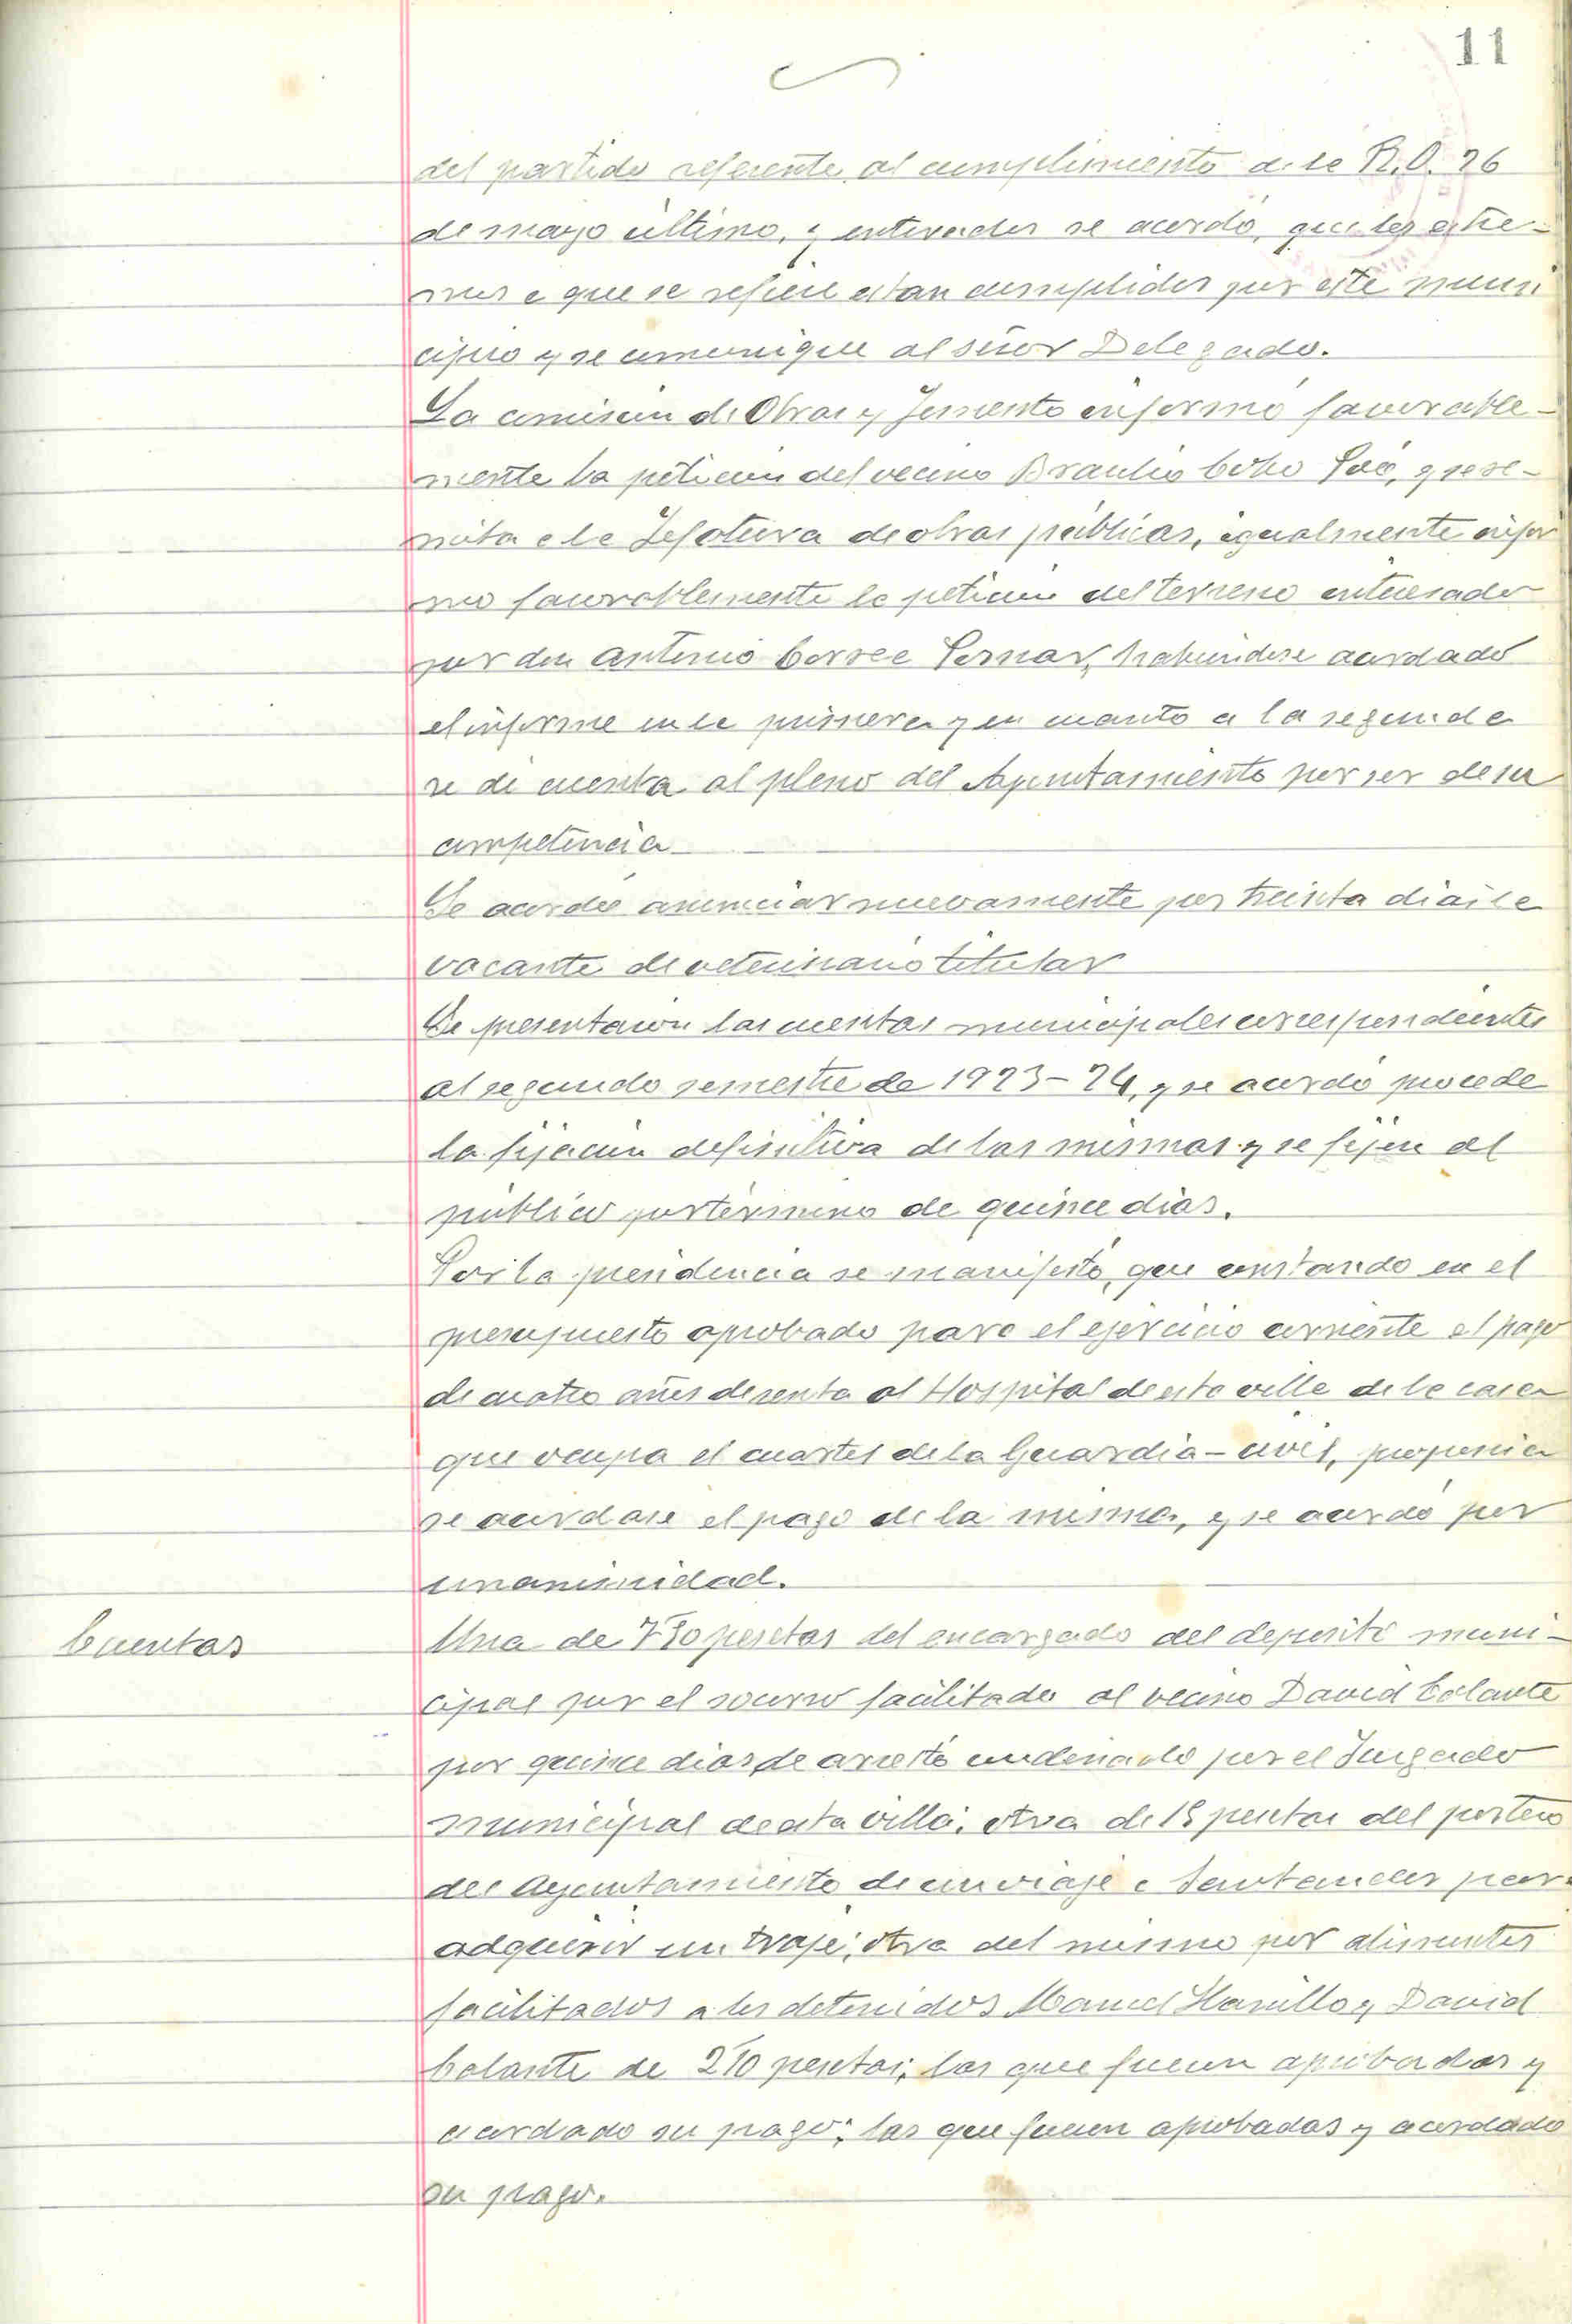 11
del partido referente al cumplimiento de la R.O. 26
de mayo último, y enterados se acordó, que los extre-
mos a que se refiere estan cumplidos por este muni
cipio y se comunique al señor Delegado.
La comision de Obras y Fomento informó favorable-
mente la peticion del vecino Braulio Cobo y se re-
mita a la Jefatura de obras públicas, igualmente infor
mo favorablemente la peticion del terreno interesado
por don Antonio Pernas, habiendose acordado
el informe en la primera y en cuanto a la segunda
se dé cuenta al pleno del Ayuntamiento por ser de su
competencia
Se acordó anunciar nuevamente por treinta dias la
vacante de veterinario titular
Se presentaron las cuentas municipales correspondientes
al segundo semestre de 1923-24, y se acordó procede
la fijacion definitiva de las mismas y se fijen al
público por término de quince dias.
Por la presidencia se manifestó, que constando en el
presupuesto aprobado para el ejercicio corriente el pago
de cuatro años de renta al Hospital de esta villa de la casa
que ocupa el cuartel de la Guardia-civil, proponia
se acordase el pago de la misma, y se acordó por
unanimidad.
Cuentas
Una de 7'50 pesetas del encargado del deposito muni-
cipal por el socorro facilitado al vecino David Colante
por quince dias de arresto condenado por el Juzgado
municipal de esta villa; otra de 15 pesetas del portero
del Ayuntamiento de un viaje a Santander para
adquirir un traje; otra del mismo por alimentos
facilitados a los detenidos Manuel y David
Colante de 2'10 pesetas; las que fueron aprobadas y
acordado su pago; las que fueron aprobadas y acordado
su pago.